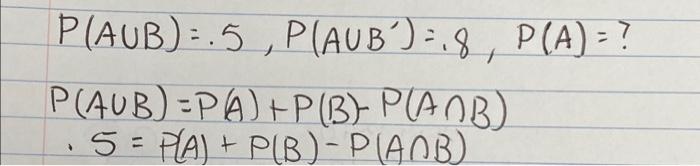 P(A∪B)=.5, P(A∪B′)=.8, P(A)=?
P(A∪B)=P(A)+P(B)-P(A∩B)
.5=P(A)+P(B)-P(A∩B)